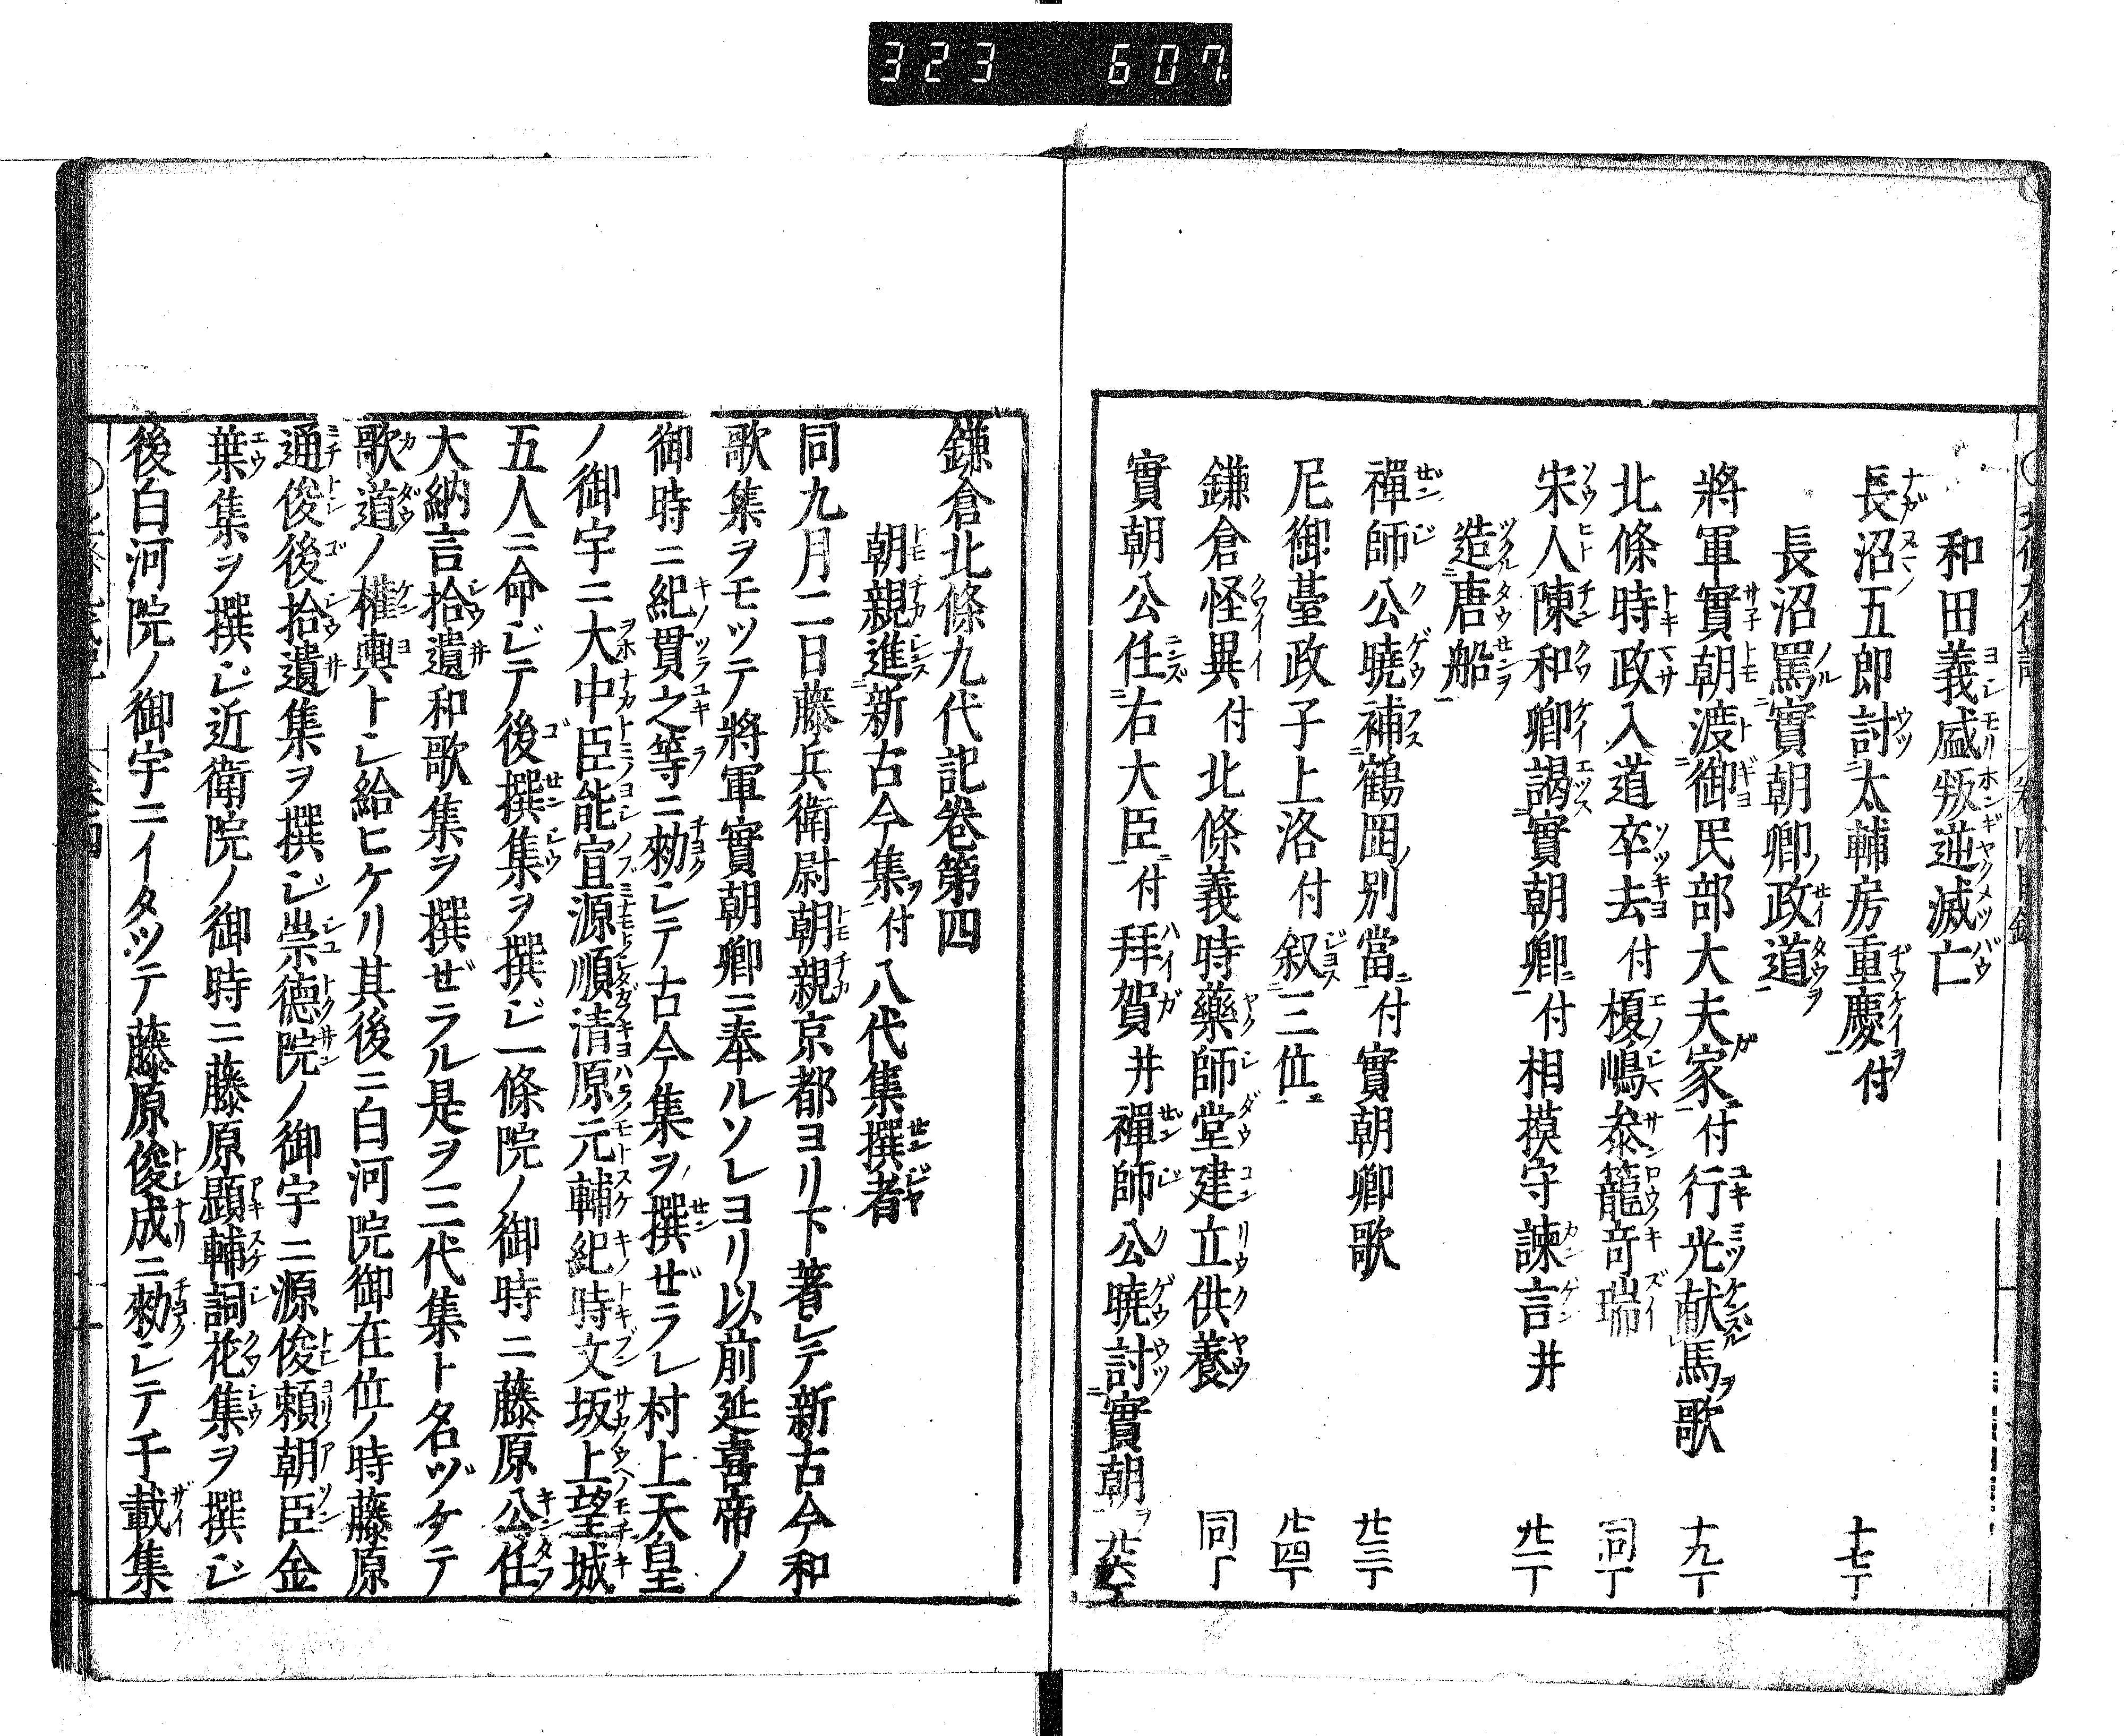 323 607
和田義盛叛逆滅亡
長沼五郎討太輔房重慶付 十七丁
長沼罵實朝卿政道
將軍實朝渡御民部大夫家付行光献馬歌 十九丁
北條時政入道卒去付榎嶋参籠奇瑞 同丁
宋人陳和卿謁實朝卿付相摸守諫言并 廿一丁
造唐船
禪師公曉補鶴岡別當付實朝卿歌 廿三丁
尼御臺政子上洛付叙三位 廿四丁
鎌倉怪異付北條義時藥師堂建立供養 同丁
實朝公任右大臣付拜賀并禪師公曉討實朝
鎌倉北條九代記卷第四
朝親進新古今集付八代集撰者
同九月二日藤兵衛尉朝親京都ヨリ下著シテ新古今和
歌集ヲモツテ將軍實朝卿ニ奉ルソレヨリ以前延喜帝ノ
御時ニ紀貫之等ニ勅シテ古今集ヲ撰ゼラレ村上天皇
ノ御宇ニ大中臣能宣源順清原元輔紀時文坂上望城
五人ニ命ジテ後撰集ヲ撰ジ一條院ノ御時ニ藤原公任
大納言拾遺和歌集ヲ撰ゼラル是ヲ三代集ト名ヅケテ
歌道ノ權輿トシ給ヒケリ其後ニ白河院御在位ノ時藤原
通俊後拾遺集ヲ撰ジ崇德院ノ御宇ニ源俊頼朝臣金
葉集ヲ撰ジ近衛院ノ御時ニ藤原顯輔詞花集ヲ撰ジ
後白河院ノ御宇ニイタツテ藤原俊成ニ勅シテ千載集